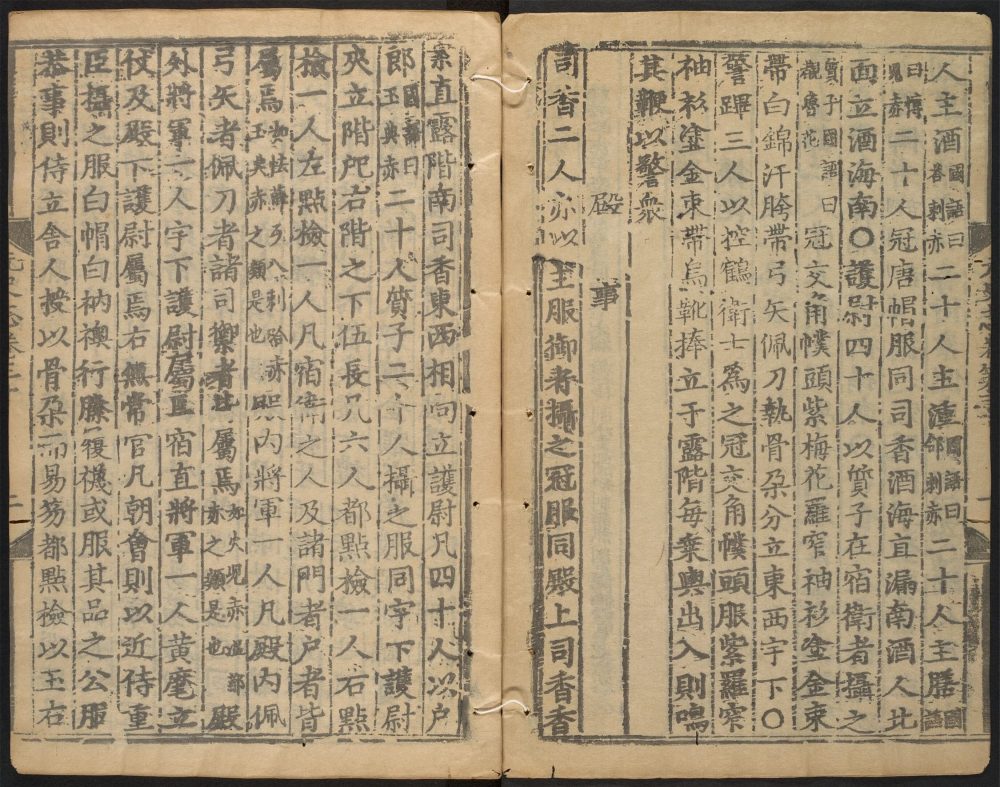 人主酒國語曰荅剌赤二十人主湩國語曰郃剌赤二十人主膳國語
曰博兒赤二十人冠唐帽服同司香酒海直漏南酒人北
面立酒海南〇護尉四十人以質子在宿衛者攝之
質子國語曰覩魯花冠交角幞頭紫梅花羅窄袖衫塗金束
帶白錦汗胯帶弓矢佩刀執骨朶分立東西宇下〇
警蹕三人以控鶴衛士為之冠交角幞頭服紫羅窄
袖衫塗金束帶烏靴捧立于露階每乗輿出入則鳴
其鞭以警衆
殿 事
司香二人亦以主服御者攝之冠服同殿上司香香
案直露階南司香東西相向立護尉凡四十人以户
郎國語曰玉典赤二十人質子二十人攝之服同宇下護尉
夾立階戺右階之下伍長凡六人都點檢一人右點
檢一人左點檢一人凡宿衛之人及諸門者户者皆
屬焉如怯薛歹八剌哈赤玉典赤之類是也殿内將軍一人凡殿内佩
弓矢者佩刀者諸司禦者皆屬焉如火兒赤温都赤之類是也殿
外將軍一人宇下護尉屬焉宿直將軍一人黄麾立
仗及殿下護尉屬焉右無常官凡朝會則以近侍重
臣攝之服白帽白衲襖行縢履襪或服其品之公服
恭事則侍立舎人授以骨朶而易笏都點檢以玉右